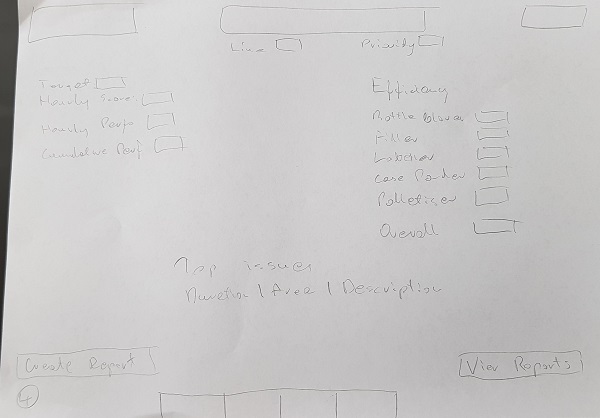 Line
Priority
Target
Hourly Score
Hourly Perf
Cumulative Perf
Efficiency
Bottle Blower
Filler
Labeller
Case Packer
Palletiser
Overall
Top issues
Duration | Area | Description
Create Report
View Reports